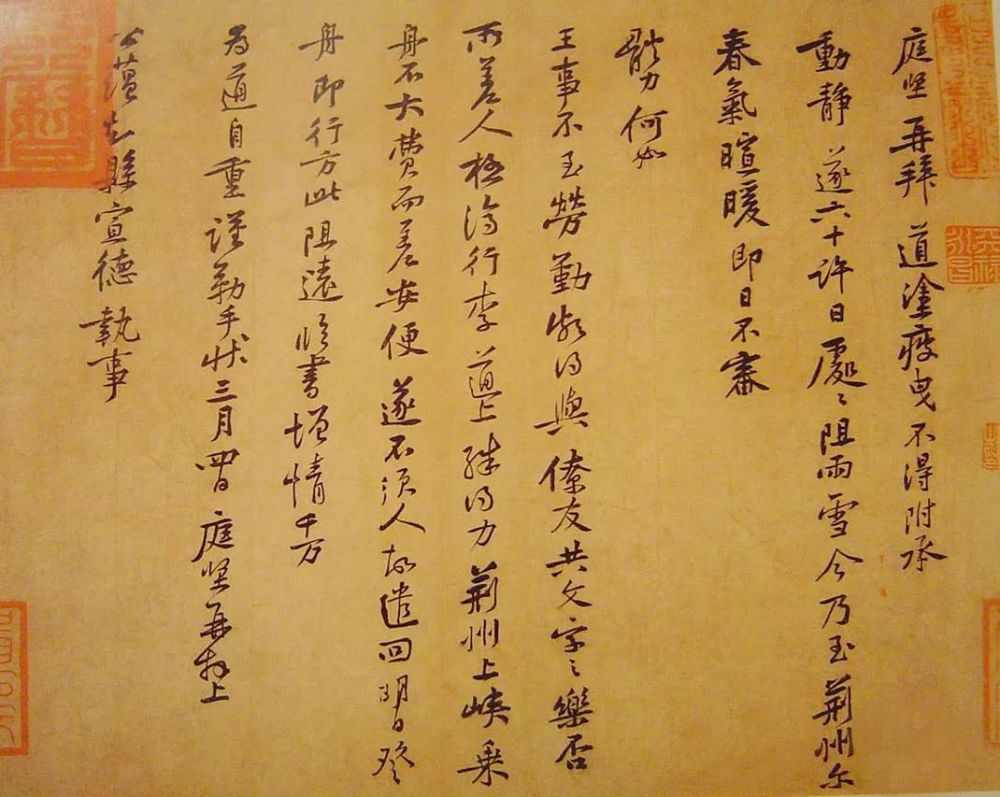 庭堅再拜 道塗疲曳不得附承
動靜 遂六十許日處〻阻雨雪今乃至荊州尔
春氣暄暖即日不審
體力何如
王事不至勞勤頗得與僚友共文字之樂否
所差人極濟行李道上殊得力荊州上峽乘
舟不大費而差安便遂不須人故遣回明日登
舟即行方此阻遠臨書增情千万
為道自重謹勒手狀三月四日 庭堅再拜上
公蘊知縣宣德執事